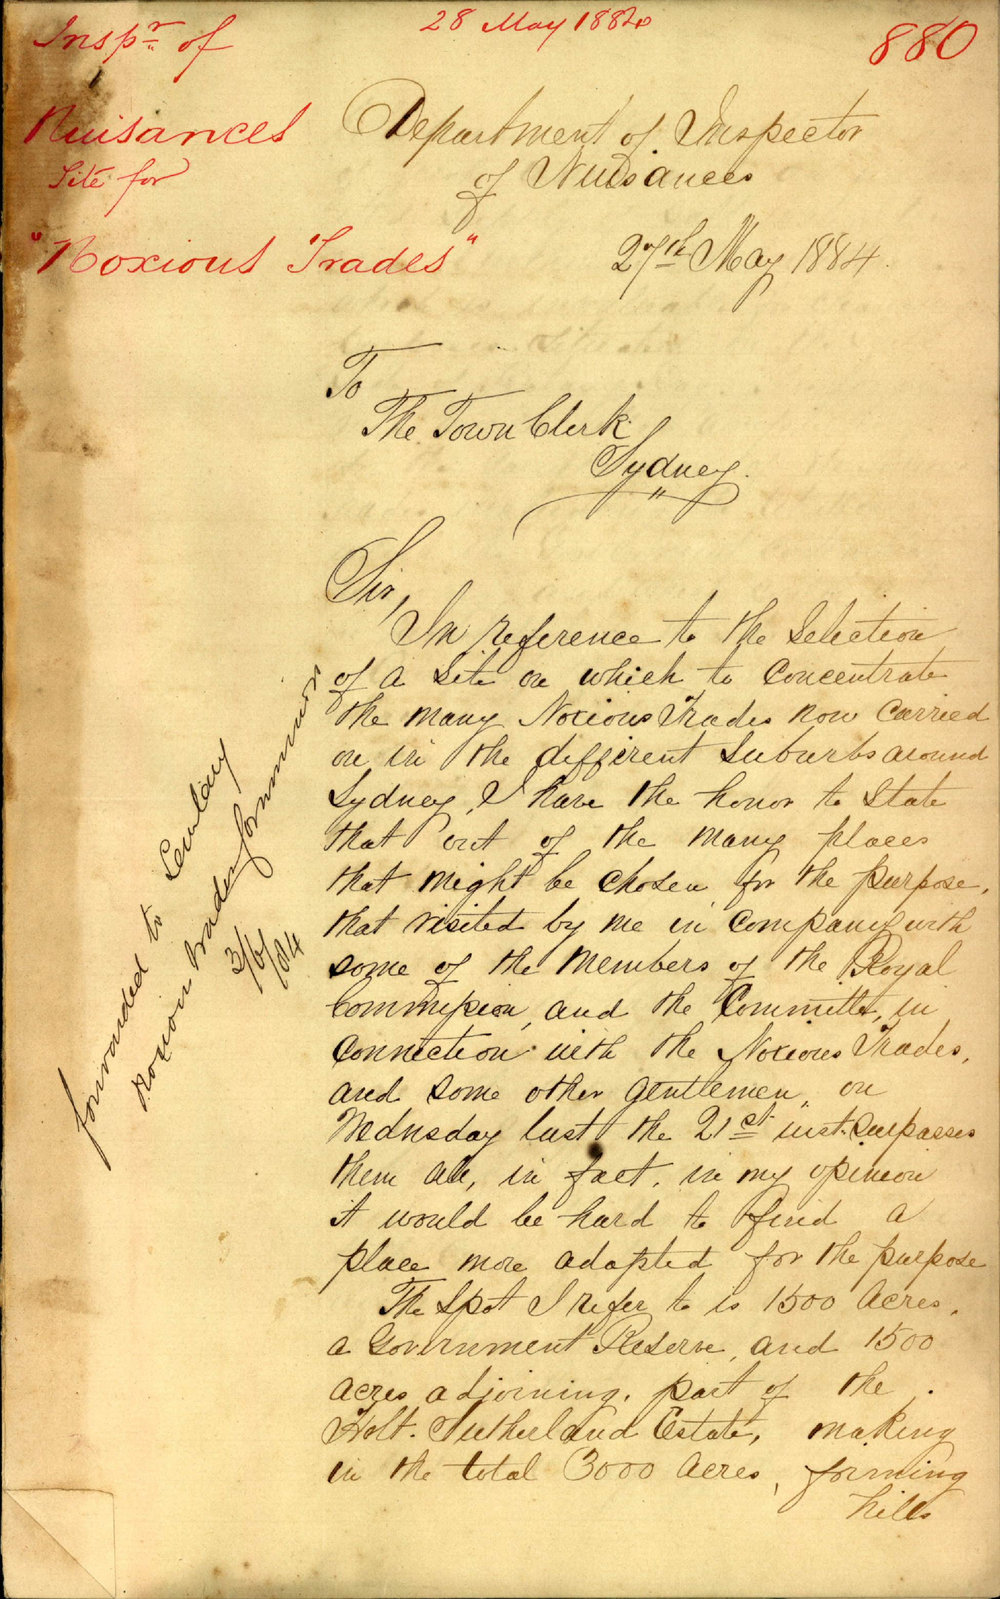 Inspr. of
28 May 1884
880
Nuisances
Site for
"Noxious Trades"
Department of Inspector
of Nuisances
27th May 1884.
To
The Town Clerk
Sydney.
Sir,
In reference to the Selection
of a Site on which to Concentrate
the many Noxious Trades now Carried
on in the different Suburbs around
Sydney, I have the honor to State
that out of the many places
that might be chosen for the purpose,
that visited by me in Company with
some of the Members of the Royal
Commission, and the Committee, in
Connection with the Noxious Trades,
and some other gentlemen, on
Wednesday last the 21st inst. surpasses
them all, in fact, in my opinion
it would be hard to find a
place more adapted for the purpose
The Spot I refer to is 1500 Acres,
a Government Reserve, and 1500
acres adjoining, part of the
Holt. Sutherland Estate, making
in the total 3000 Acres, forming
hills
forwarded to
Noxious trades Commission
3/6/84